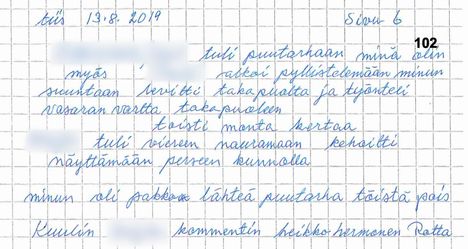 tiis 13.8. 2019 Sivu 6
102
tuli puutarhaan minä olin
myös i alkoi pyllistelemään minun
suuntaan levitti takapualta ja työnteli
vasaran vartta takapuoleen
toisti monta kertaa
tuli viereen nauramaan kehoitti
näyttämään perseen kunnolla
minun oli pakko lähteä puutarha töistä pois
Kuulin kommentin heikko hermonen Rotta